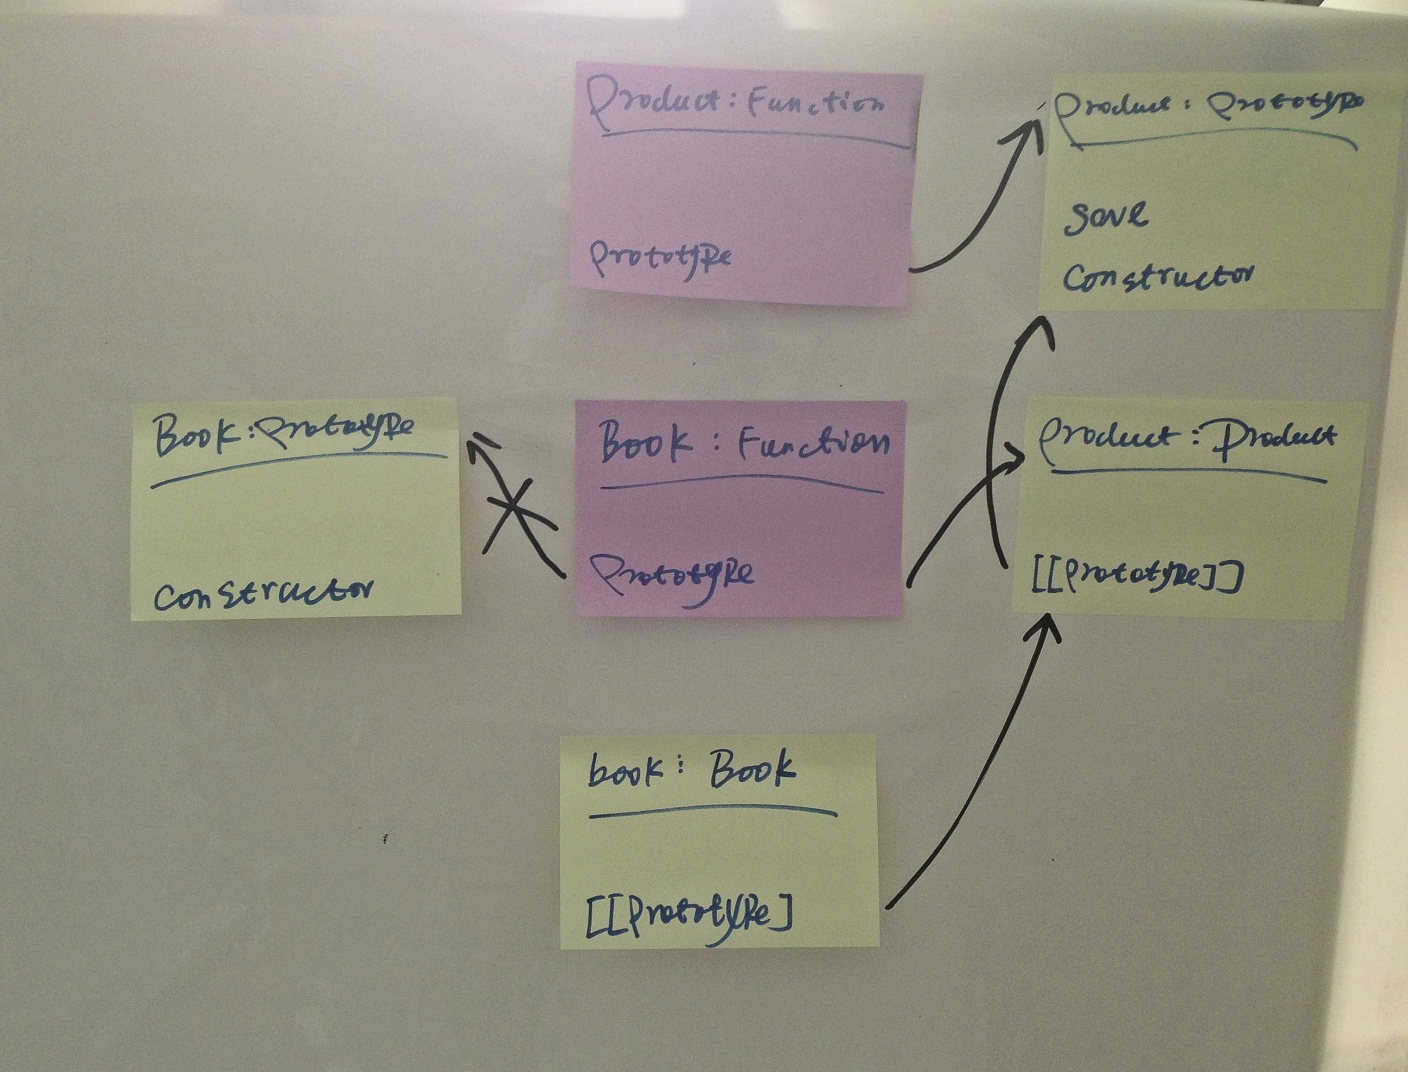 Product : Function
Prototype
Product : Prototype
save
constructor
Book : Prototype
constructor
Book : Function
Prototype
product : Product
[[Prototype]]
book : Book
[[Prototype]